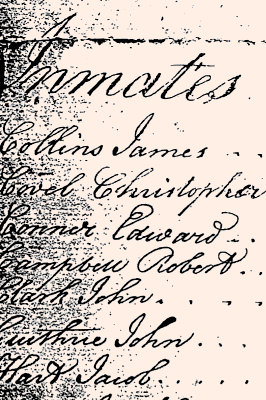 Inmates
Collins James . .
Covel Christopher
Conner Edward . .
Campbell Robert . .
Clark John . . . .
Guthrie John . . .
Hart Jacob . . . . .